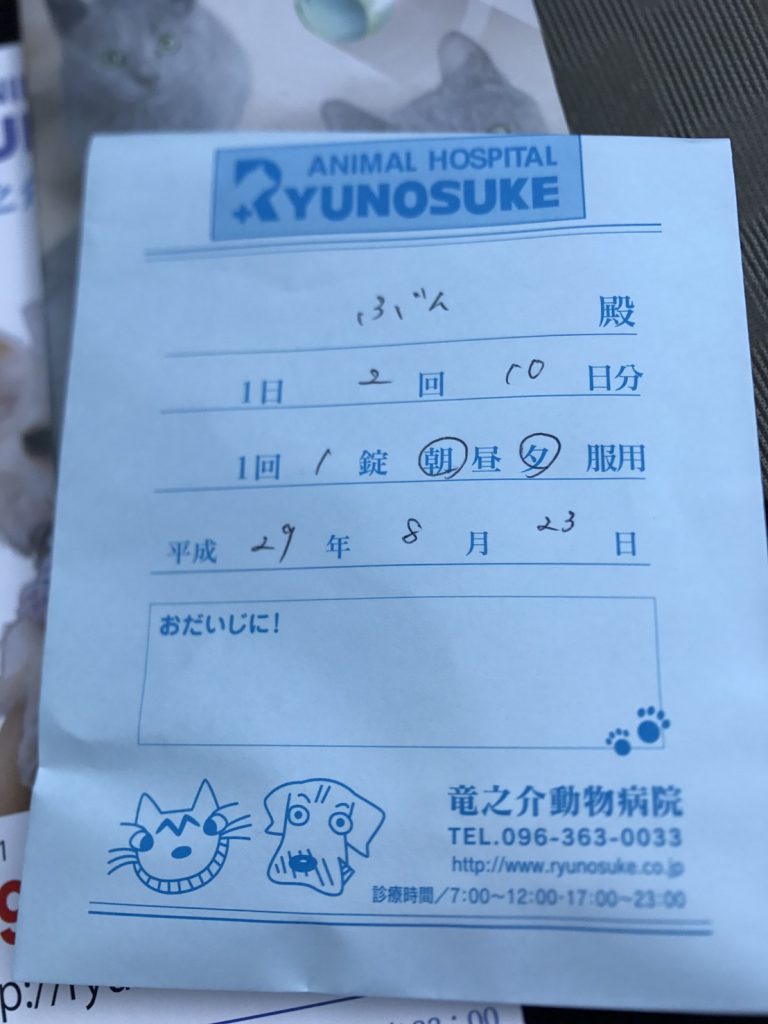 ANIMAL HOSPITAL
RYUNOSUKE
ぶん 殿
1日 2 回 10 日分
1回 1 錠 朝 昼 夕 服用
平成 29 年 8 月 23 日
おだいじに!
竜之介動物病院
TEL.096-363-0033
http://www.ryunosuke.co.jp
診療時間/7:00~12:00・17:00~23:00